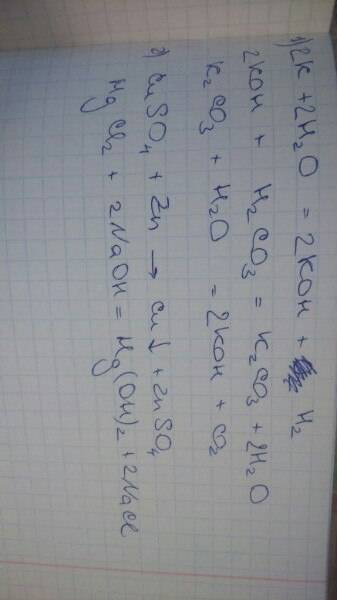 1) 2K + 2H₂O = 2KOH + H₂
2KOH + H₂CO₃ = K₂CO₃ + 2H₂O
K₂CO₃ + H₂O = 2KOH + CO₂
2) CuSO₄ + Zn → Cu↓ + ZnSO₄
MgCl₂ + 2NaOH = Mg(OH)₂ + 2NaCl